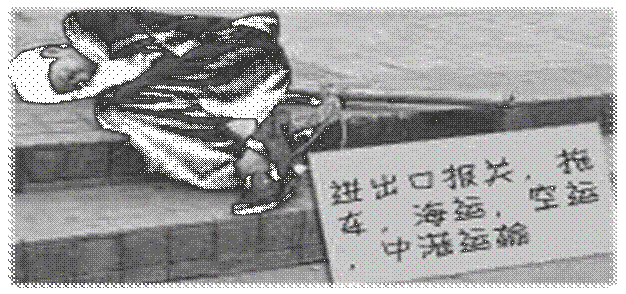 进出口报关，拖
车，海运，空运
，中港运输